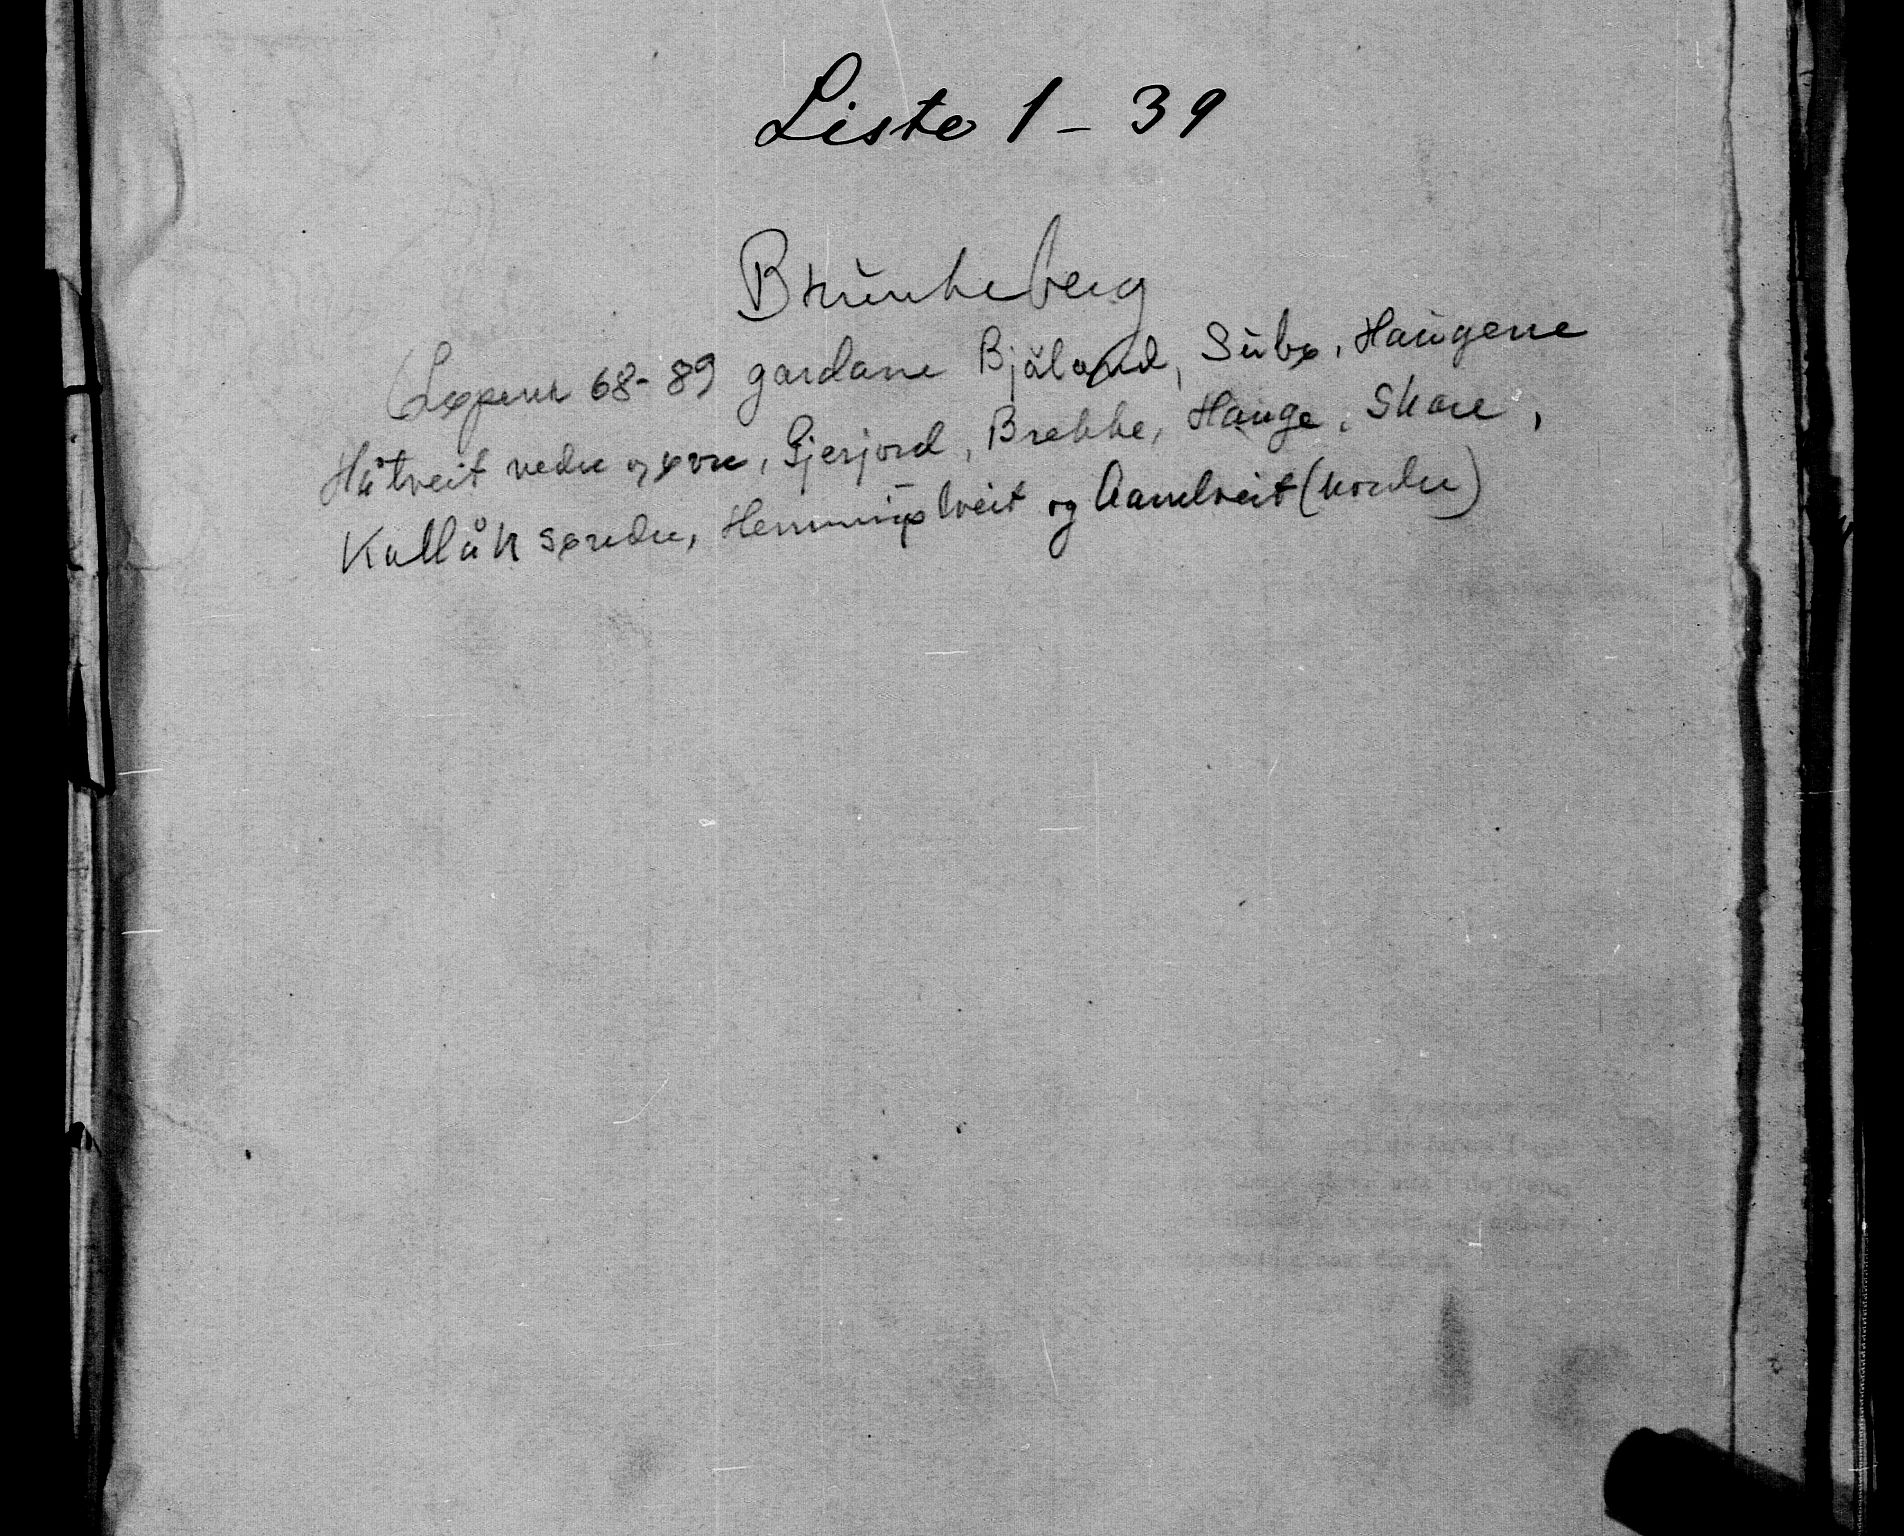 Liste 1 - 39
Brunkeberg
Løpenr 68-89 gardane Bjåland, Subø, Haugene
Håtveit nedre og øvre, Gjersjord, Brekke, Hauge, Skare,
Kallåk søndre, Hemmingstveit og Aamlveit (nordre)